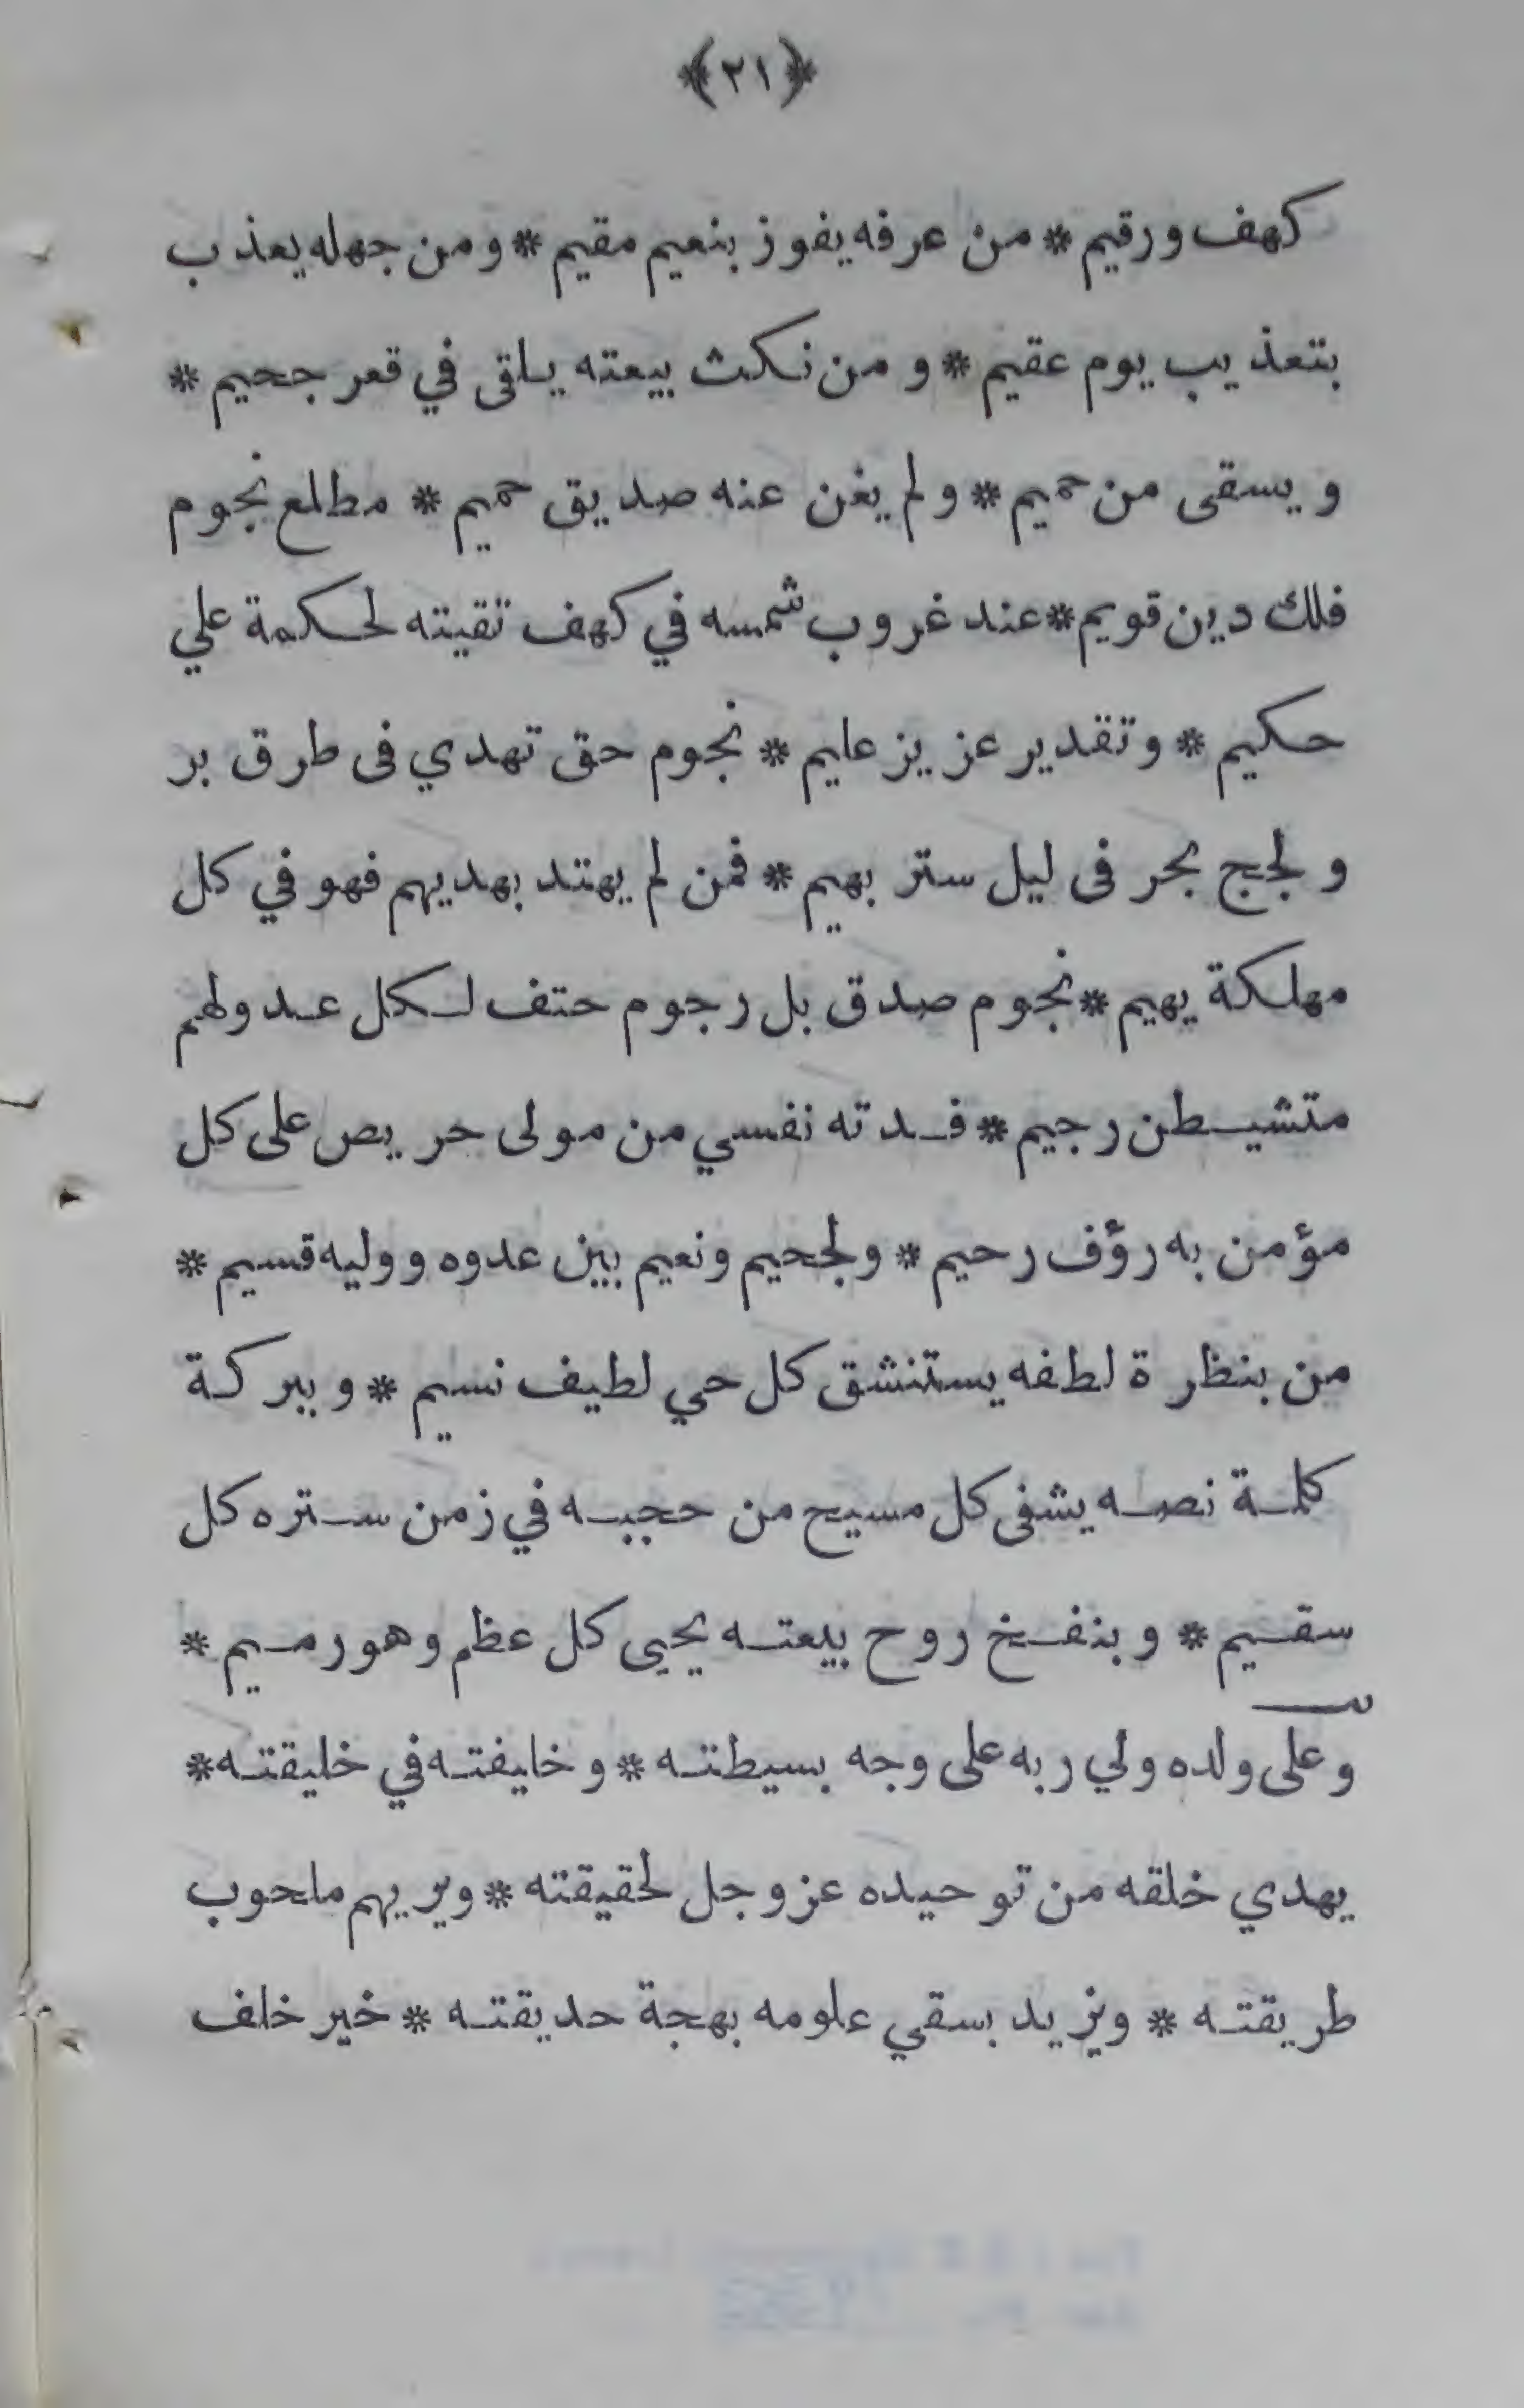 ﴿٢١﴾
كهف ورقيم * من عرفه يفوز بنعيم مقيم * ومن جهله يعذب
بتعذيب يوم عقيم * و من نكث بيعته يلقى في قعر جحيم *
و يسقى من حميم * ولم يغن عنه صديق حميم * مطلع نجوم
فلك دين قويم * عند غروب شمسه في كهف تقيته لحكمة علي
حكيم * وتقدير عزيز عليم * نجوم حق تهدي فى طرق بر
ولجج بحر فى ليل ستر بهيم * فمن لم يهتد بهديهم فهو في كل
مهلكة يهيم * نجوم صدق بل رجوم حتف لكل عدو لهم
متشيطن رجيم * فدته نفسي من مولى حريص على كل
مؤمن به رؤف رحيم * ولجحيم ونعيم بين عدوه ووليه قسيم *
من بنظرة لطفه يستنشق كل حي لطيف نسيم * وببركة
كلمة نصه يشفى كل مسيح من حجبه في زمن ستره كل
سقيم * وبنفخ روح بيعته يحيى كل عظم وهو رميم *
وعلى ولده ولي ربه على وجه بسيطته * وخليفته في خليقته *
يهدي خلقه من توحيده عز وجل لحقيقته * ويريهم ملحوب
طريقته * ويزيد بسقي علومه بهجة حديقته * خير خلف